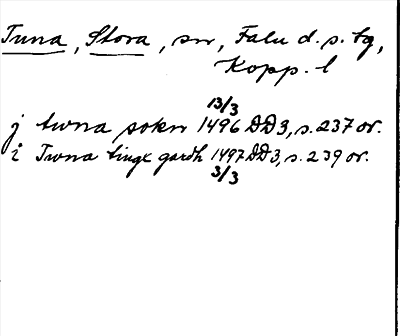 Tuna, Stora, sn, Falu d. s. bg,
Kopp. l
13/3
j twna sokn 1496 DD3, s. 237 or.
i Twna tingx gardh 1497 DD3, s. 239 or.
3/3